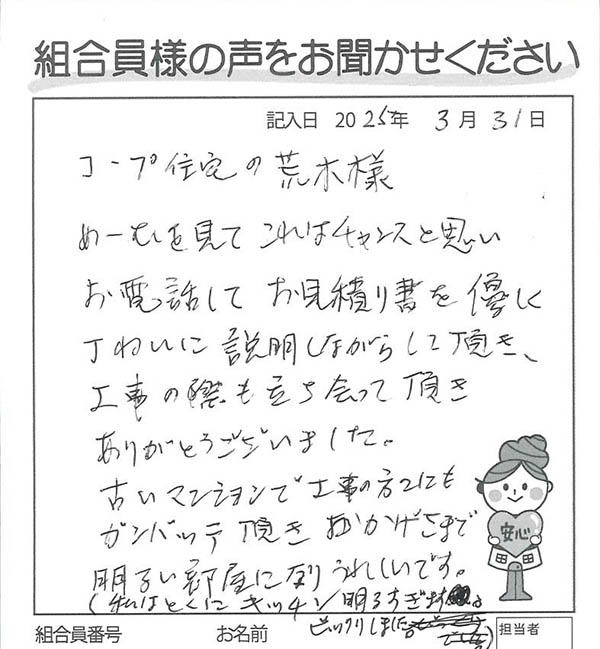 組合員様の声をお聞かせください
記入日 2025年 3月31日
コープ住宅の荒木様
めーむを見てこれはチャンスと思い
お電話して お見積り書を優しく
丁ねいに説明しながらして頂き、
工事の際も立ち会って頂き
ありがとうございました。
古いマンションで工事の方々にも
ガンバッテ頂き おかげさまで
明るい部屋になりうれしいです。
(私はとくにキッチン明るすぎます。
ビックリしました
安心
組合員番号 お名前 担当者